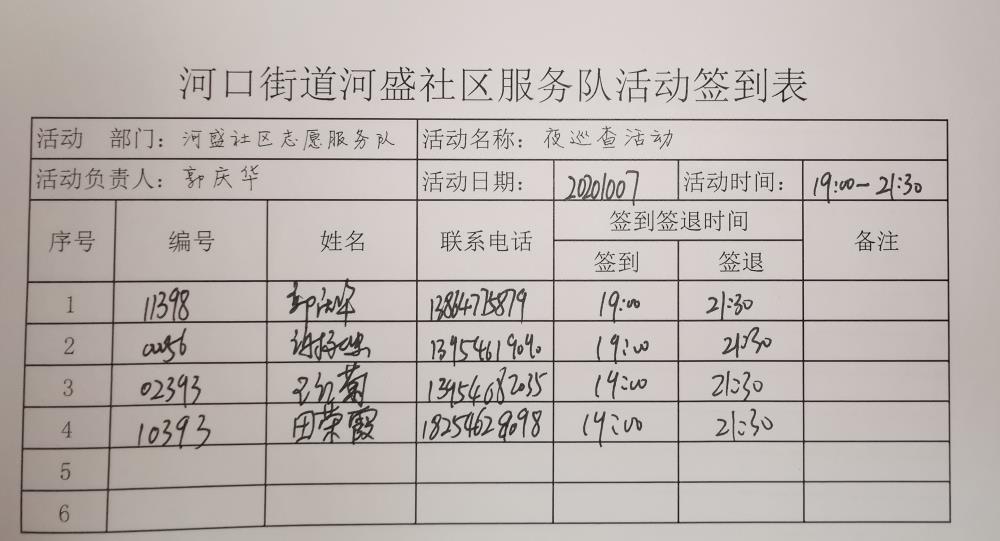 河口街道河盛社区服务队活动签到表
活动 部门：河盛社区志愿服务队 活动名称：夜巡查活动
活动负责人：郭庆华 活动日期：20201007 活动时间：19:00-21:30
序号 编号 姓名 联系电话 签到签退时间 备注
签到 签退
1 11398 郭庆华 13864775879 19:00 21:30
2 0056 13954619090 19:00 21:30
3 02393 王红菊 13954682035 19:00 21:30
4 10393 田荣霞 18254629098 19:00 21:30
5
6